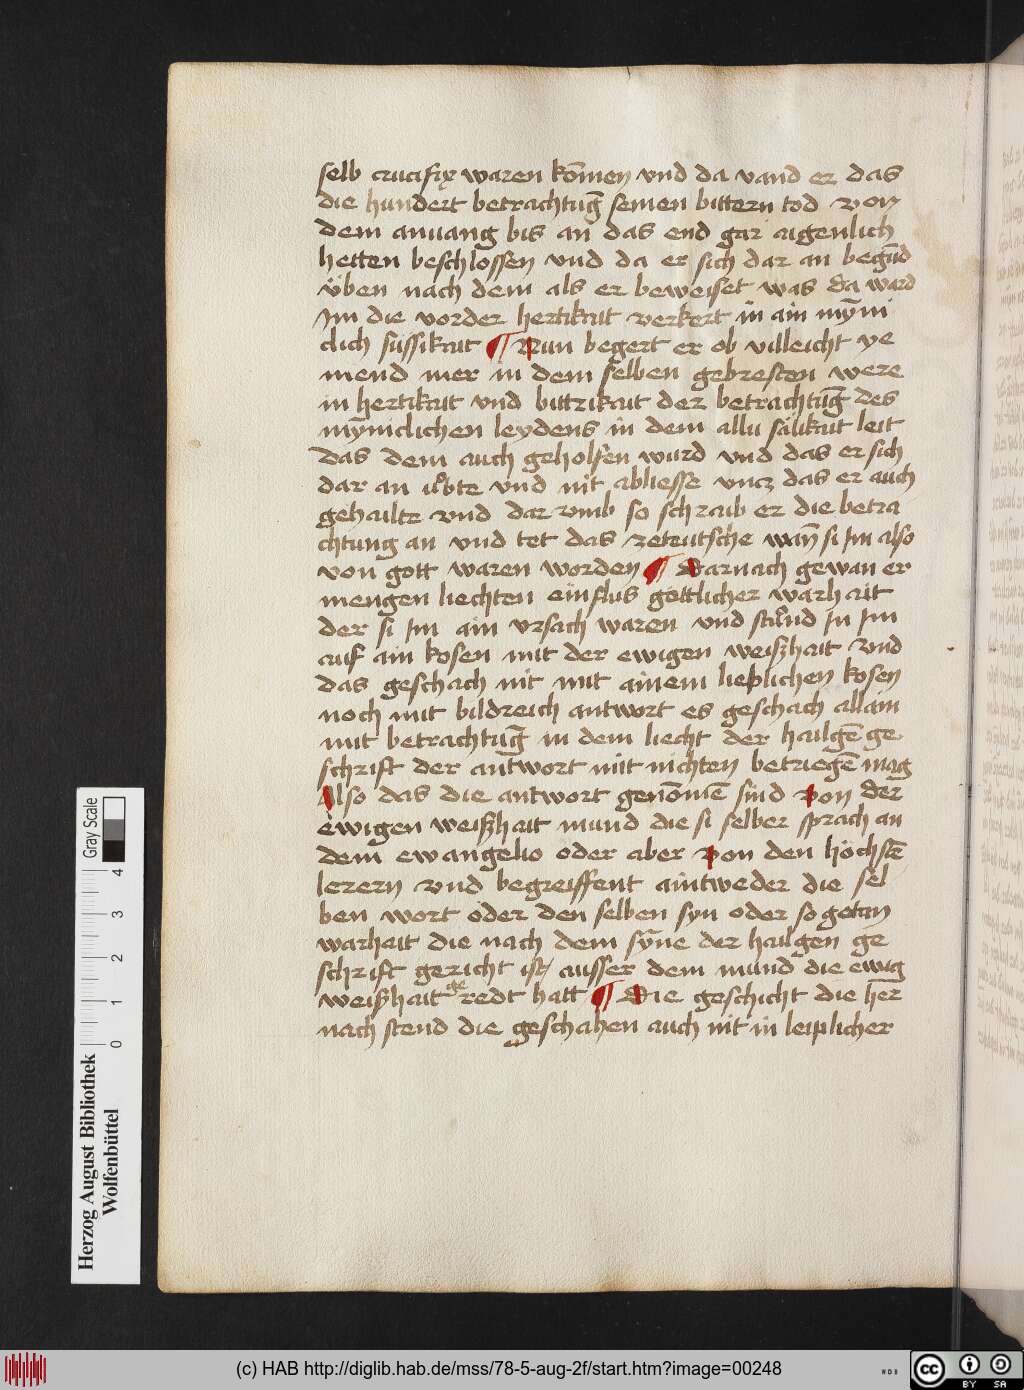 selb crucifix waren kōmen vnd da vand er das
die hundert betrachtūg seinen bittern tod von
dem anuang bis an das end gar aigenlich
hetten beschlossen vnd da er sich dar an begūd
üben nach dem als er beweiset was da ward
Im die vorder hertikait verkert in ain mȳni
clich süssikait ¶ Nun begert er ob villeicht ye
mend mer in dem selben gebresten were
in hertikait vnd bittrikait der betrachtūg des
mȳniclichen leydens in dem allū sälikait leit
das dem auch geholfen wurd vnd das er sich
dar an uͤbte vnd nit abliesse vncz das er auch
gehailte vnd dar vmb so schraib er die betra
chtung an vnd tet das zeteutsche wan̄ si Im also
von gott waren worden ¶ Darnach gewan er
mengen liechten einflus gottlicher warhait
der si Im ain vrsach waren vnd stuͦnd In Im
auf ain kosen mit der ewigen weißhait vnd
das geschach nit mit ainem lieplichen kosen
noch mit bildreich antwort es geschach allain
mit betrachtūg in dem liecht der hailgē ge
schrift der antwort mit nichten betriegē mag
Also das die antwort genōmē sind von der
ewigen weißhait mund die si selber sprach an
dem ewangelio oder aber von den höchstē
lerern vnd begreiffent aintweder die sel
ben wort oder den selben syn oder so getan
warhait die nach dem sȳne der hailgen ge
schrift gericht ist/ ausser dem mund die ewig
weißhait geredt hatt ¶ Die geschicht die her̄
nach stend die geschahen auch nit in leiplicher
Herzog August Bibliothek
Wolfenbüttel
0 1 2 3 4
Gray Scale
(c) HAB http://diglib.hab.de/mss/78-5-aug-2f/start.htm?image=00248
WDB
cc BY SA